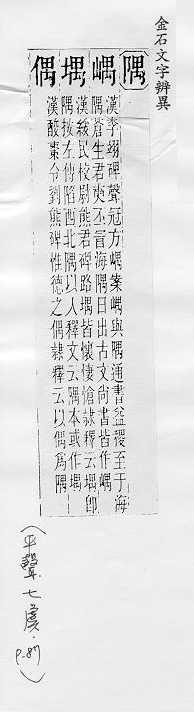 金石文字辨異
隅
嵎 漢李翊碑聲冠方嵎案嵎與隅通書益稷至于海
隅蒼生君奭丕冒海隅日出古文尚書皆作嵎
堣 漢綏民校尉熊君碑路堣皆懷悽愴隸釋云堣即
隅按左傳陷西北隅以入釋文云隅本或作堣
偶 漢酸棗令劉熊碑惟德之偶隸釋云以偶爲隅
(平聲七虞.P.87)